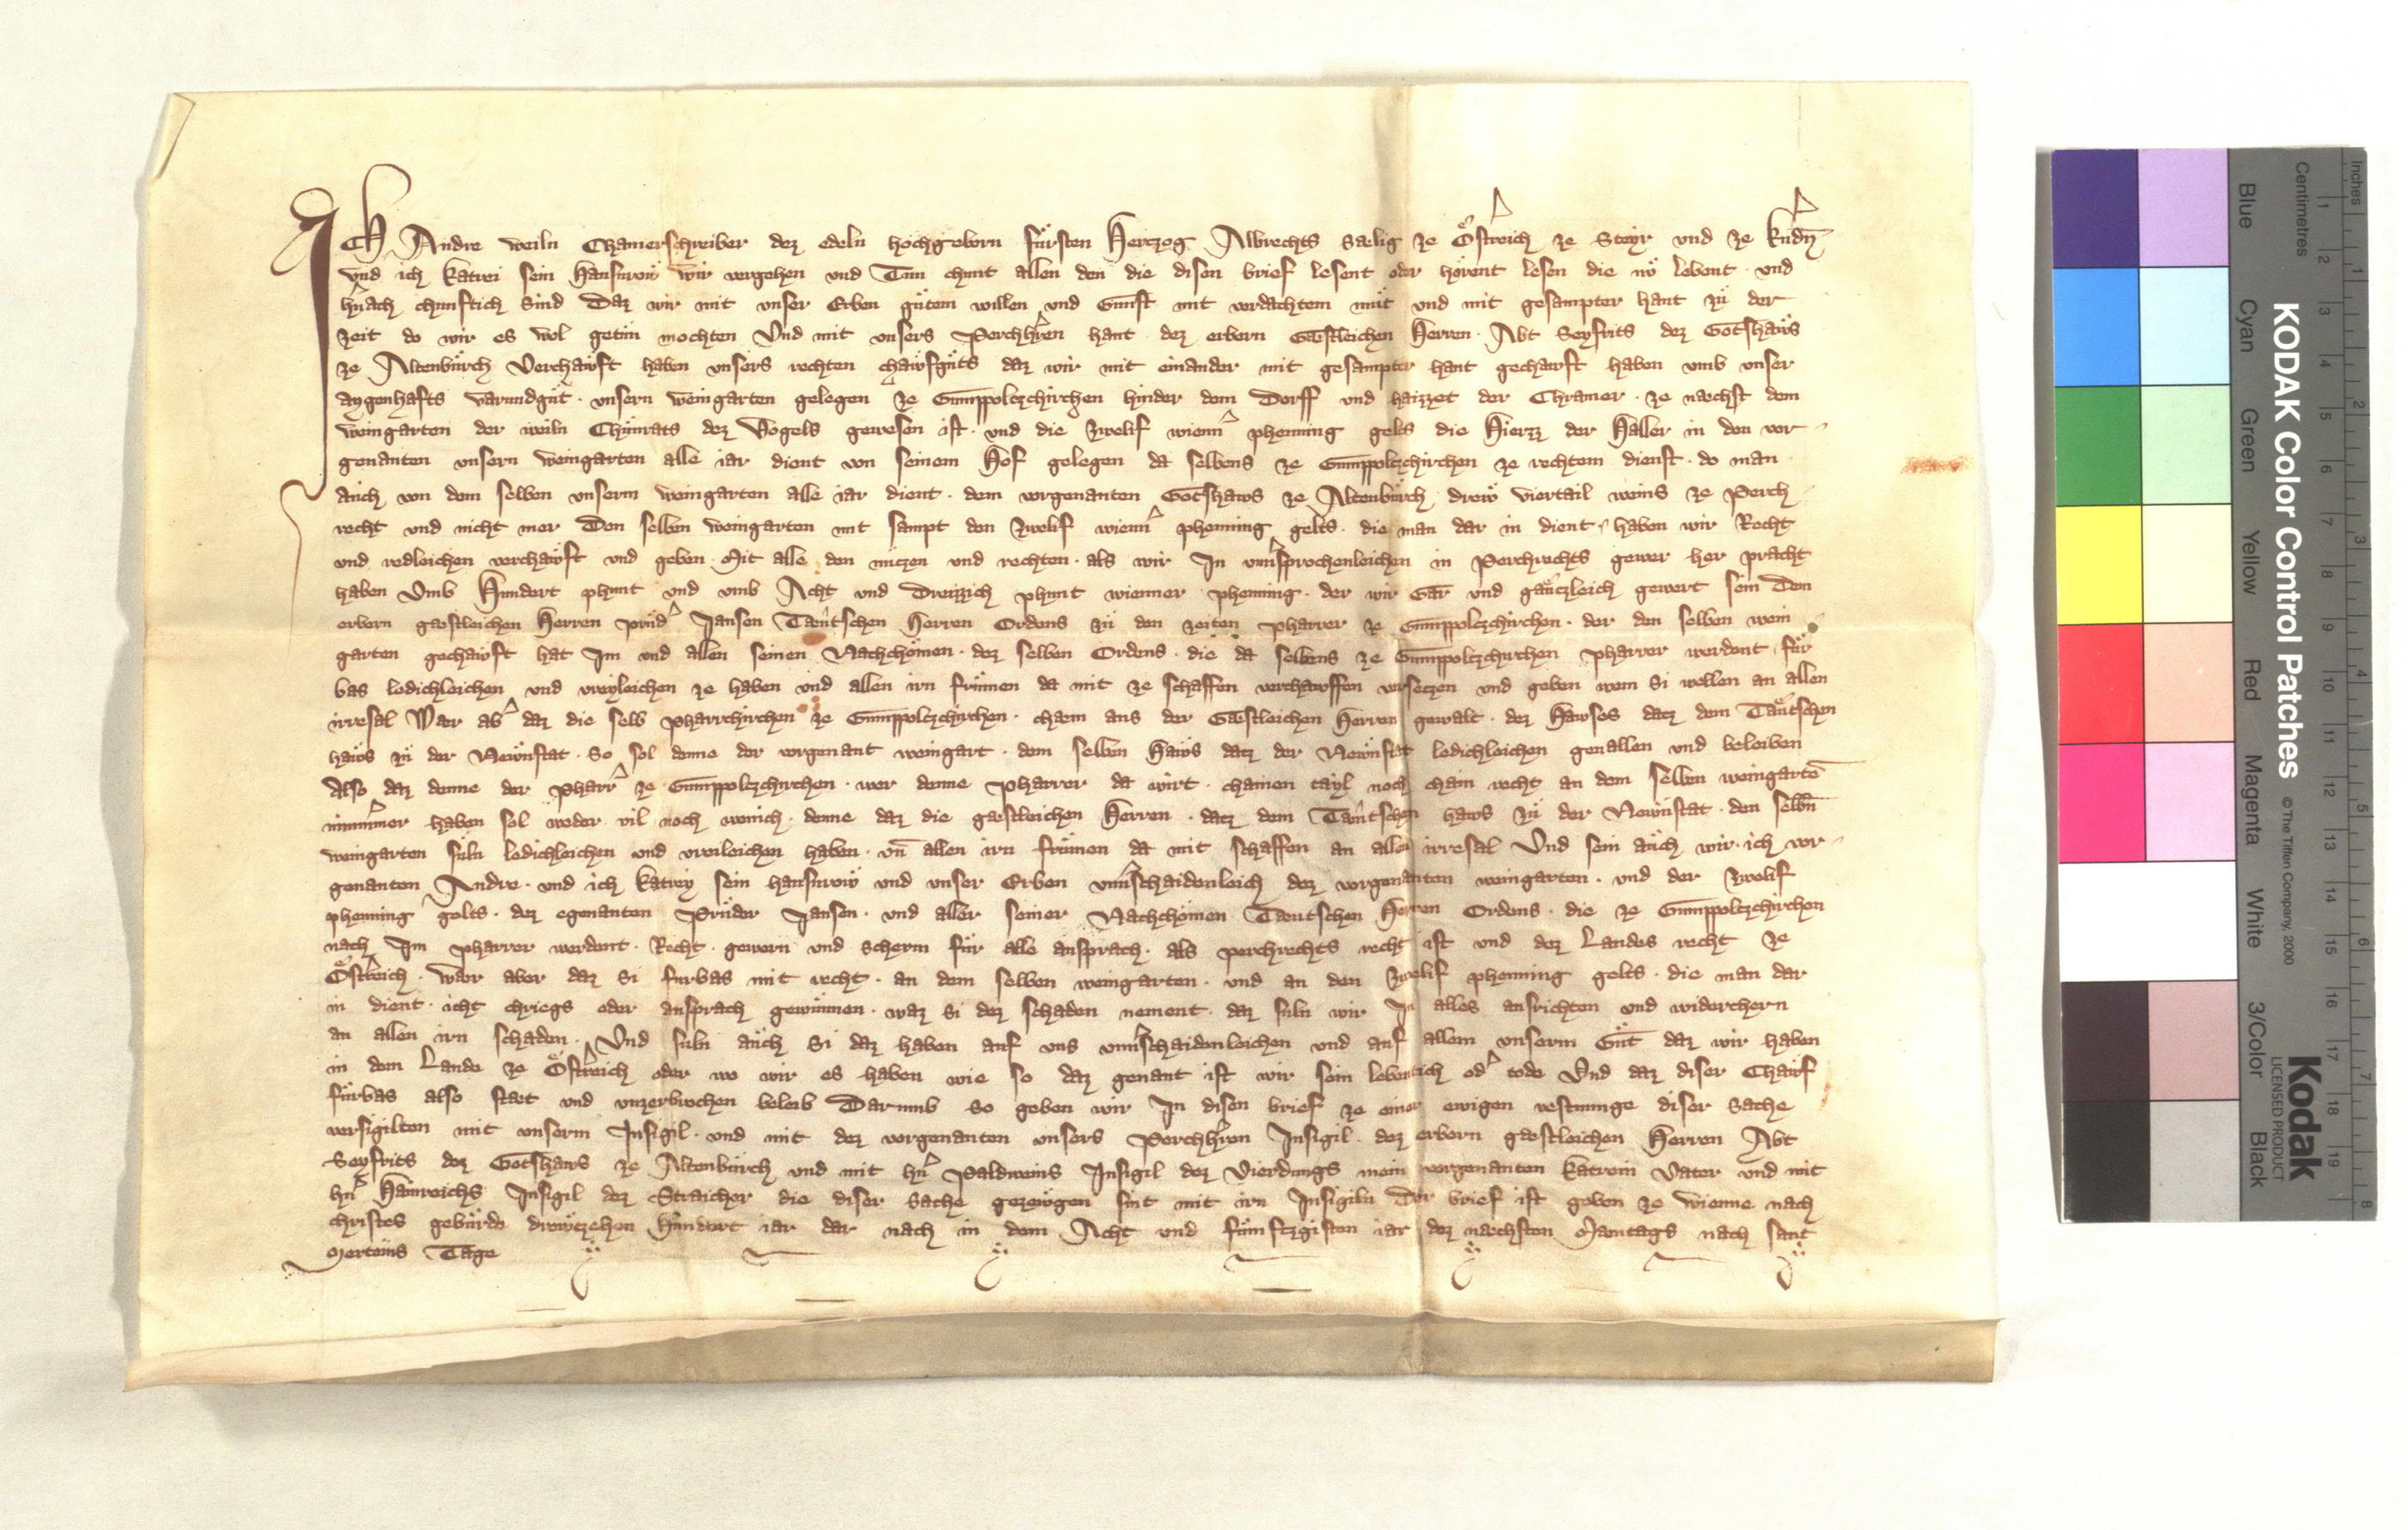 ICH Andre weiln Chamerschreiber dez edeln hochgeborn fürsten Hertzog Albrechts saelig ze Österreich ze Steyr und ze Kerndn
und ich Katrei sein hausvrow wir vergehen und Tun chunt allen den die disen brief lesent oder hörent lesen die nv lebent und
hernach chunftich sind Daz wir mit unser Erben gütem willen und Gunst mit verdachtem müt und mit gesampter hant zü der
zeit do wir es wol getün mochten Vnd mit unsers Perchherren hant dez erbern Gæstleichen Herren Abt Seyfrits dez Gotshaws
ze Altenbürch Verchawft haben unsers rechten chawfgüts daz wir mit einander mit gesampter hant gechawft haben umb unser
aygenhafts varundgüt unsern weingarten gelegen ze Gumppoltzchirchen hinder dem Dorff und haizzet der Chramer ze naechst dem
weingarten der weiln Chünrats dez Vogels gewesen ist und die zwelif wienner phenning gelts die Hierzz der Haller in den vor
genanten unsern weingarten alle iar dient von seinem Hof gelegen da selbens ze Gumppoltzchirchen ze rechtem dienst do man
auch von dem selben unserm weingarten alle iar dient dem vorgenanten Gotshaws ze Altenbürch drew viertail weins ze Perch
recht und nicht mer Den selben weingarten mit sampt den zwelif wienner phenning gelts die man dar in dient haben wir Recht
und redleichen verchawft und geben Mit alle den nützen und rechten als wir In unversprochenleichen in Perchrechts gewer her pracht
haben Vmb Hundert phunt und umb Acht und Dreizzich phunt wienner phenning der wir Gar und gæntzleich gewert sein Dem
erbern gæstleichen Herren prüder Jansen Taütschen Herren Ordens zü den zeiten pharrer ze Gumppoltzchirchen der den selben wein
garten gechawft hat Im und allen seinen Nachchömen dez selben Ordens die da selbens ze Gumppoltzchirchen pharrer werdent für
bas ledichleichen und vreyleichen ze haben und allen irn frümen da mit ze schaffen verchawffen versetzen und geben wem si wellen an allen
irresal Wær aber daz die selb pharrchirchen ze Gumppoltzchirchen chæm aus der Gæstleichen Herren gewalt dez Hawses datz dem Taütschen
haws zü der Newnstat So sol denne der vorgenant weingart dem selben Haws datz der Newnstat ledichleichen geuallen und beleiben
Also daz denne der Pharrer ze Gumppoltzchirchen wer denne Pharrer da wirt chainen tayl noch chain recht an dem selben weingarten
nimmermer haben sol weder vil noch wenich denne daz die gæstleichen Herren datz dem Taütschen haws zü der Newnstat den selben
weingarten süln ledichleichen und vreileichen haben und allen irn frümen da mit schaffen an allen irresal Und sein auch wir ich vor
genanten Andre und ich Katrey sein hausvrow und unser Erben unverschaidenleich dez vorgenanten weingarten und der zwelif
phenning gelts dez egenanten Prüder Jansen und aller seiner Nachchömen Taeutschen Herren Ordens die ze Gumppoltzchirchen
nach Im pharrer werdent Recht gewern und scherm für alle ansprach als perchrechts recht ist und dez Landes recht ze
Österreich wær aber daz si furbas mit recht an dem selben weingarten und an den zwelif phenning gelts die man dar
in dient icht chriegs oder ansprach gewünnen waz si dez schaden nement daz suln wir In alles ausrichten und widerchern
an allen irn schaden Und suln auch si daz haben auf uns unverschaidenleichen und auf allem unserm Güt daz wir haben
in dem Lande ze Österreich oder wo wir es haben wie so daz genant ist wir sein lebentich oder tode Und daz diser Chawf
fürbas also stæt und unzerbrochen beleib Darumb so geben wir In disen brief ze einer ewigen vestnunge diser sache
versigilten mit unserm Insigil und mit dez vorgenanten unsers Perchherren Insigil dez erbern gæstleichen Herren Abt
Seyfrits dez Gotshaws ze Altenbürch und mit hern Paldweins Insigil dez Vierdungs mein vorgenanten Katrein Vater und mit
hern Hainreichs Insigil dez Straicher die diser sache gezewgen sint mit irn Insigiln Der brief ist geben ze wienne nach
christes gebürde drewtzehen Hundert iar dar nach in dem Acht und fünftzgisten iar dez næchsten Mantags nach sant
Merteins Tage